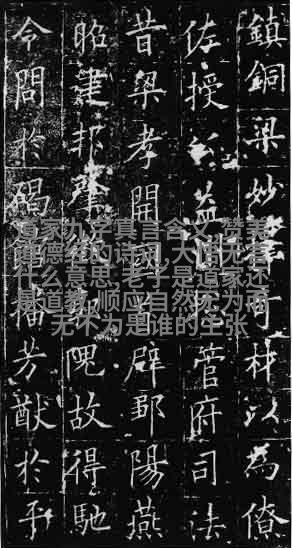 鎮銅梁妙擇奇材以為僚
佐授公益州總管府司法
昔梁孝開國首辟鄒陽燕
昭建邦肇徵郭隗故得馳
令問於碣館播芳猷於平
道家九字真言含义,赞美
道德经的诗词,大
什么意思,老子是道家还
是道教,顺应自然无为而
无不为是谁的主张